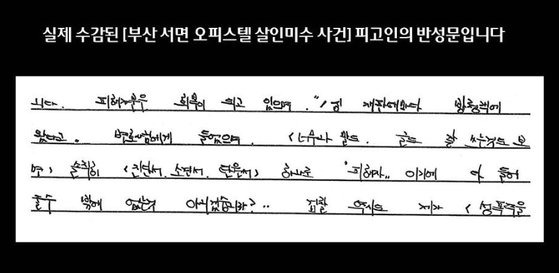 실제 수감된 [부산 서면 오피스텔 살인미수 사건] 피고인의 반성문입니다
니다. 피해자분은 회복이 되고 있으며, "1심 재판때마다 방청객에
왔다고. 변호사님에게 들었으며, 너무나 말도. 글도 잘 쓰는것도 보
면) 솔직히 <진단서, 소견서, 탄원서> 하나로 "피해자.. 이기에 다 들어
줄수 밖에 없는 아니겠습니까? .. 검찰 역시도 제가 <성폭력을